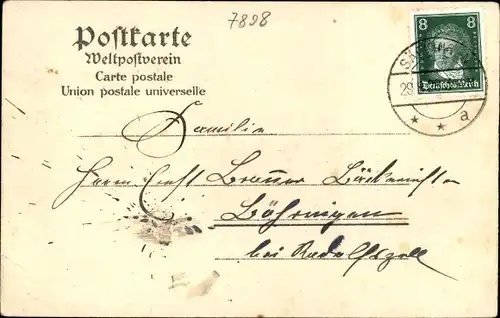 7898
Postkarte
Weltpostverein
Carte postale
Union postale universelle
8 8
Deutsches Reich
29.
* * a
Familie
Herrn Ernst Brauer
Böhringen
bei Radolfszell